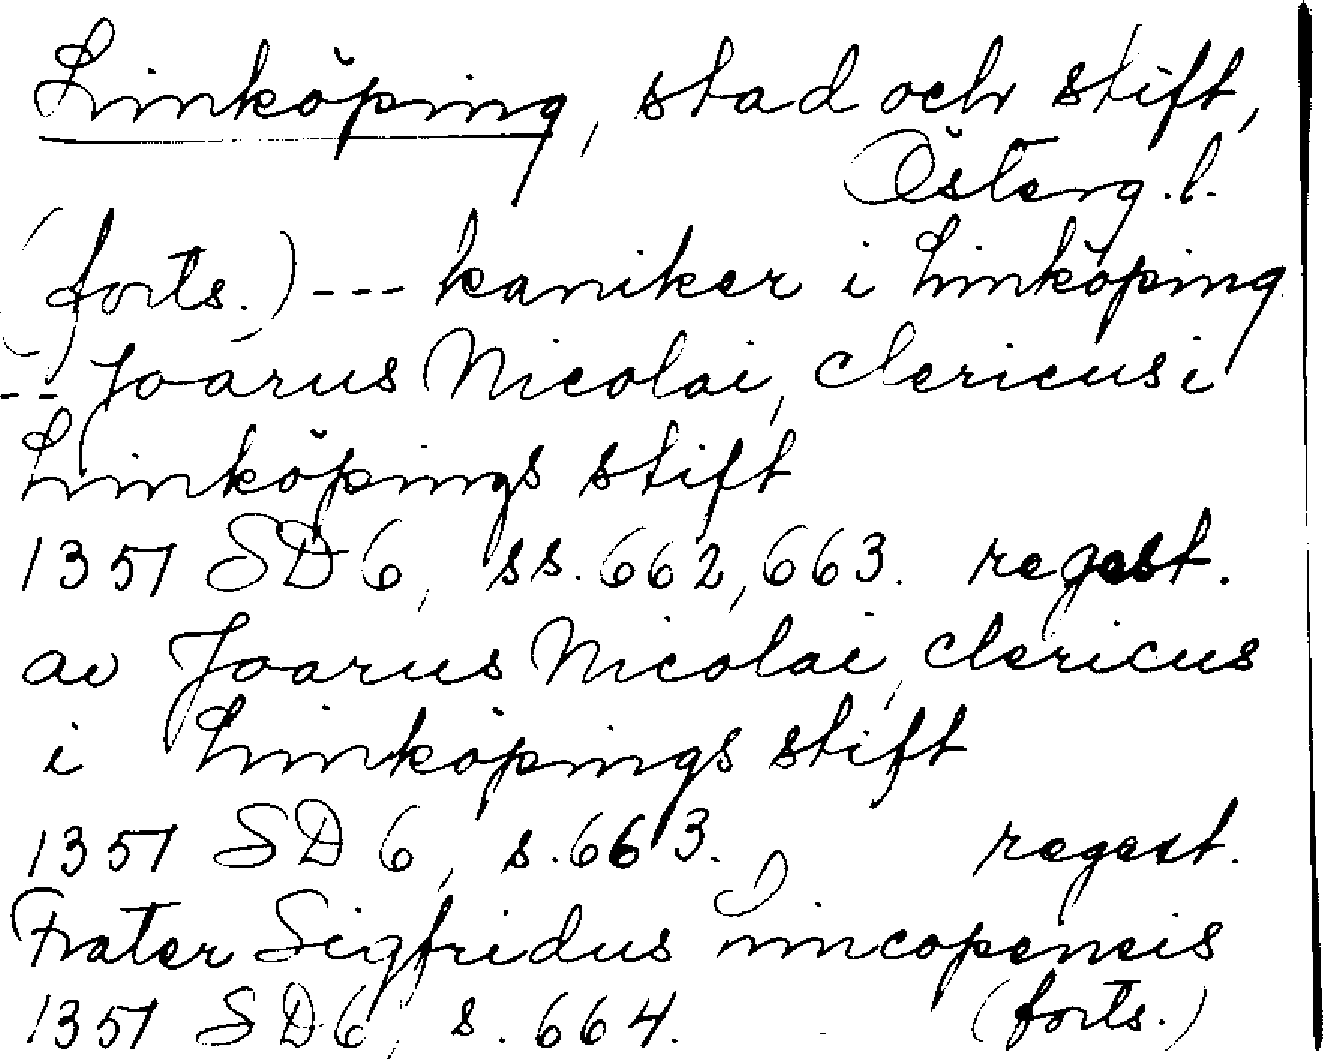 Linköping, stad och stift,
Österg.l.
(forts.) --- kaniker i Linköping
-- Joarus Nicolai, clericus i
Linköpings stift
1357 SD 6, ss. 662, 663. regest.
av Joarus Nicolai, clericus
i Linköpings stift
1357 SD 6, s. 663. regest.
Frater Sigfridus Lincopensis
1357 SD 6, s. 664. (forts.)